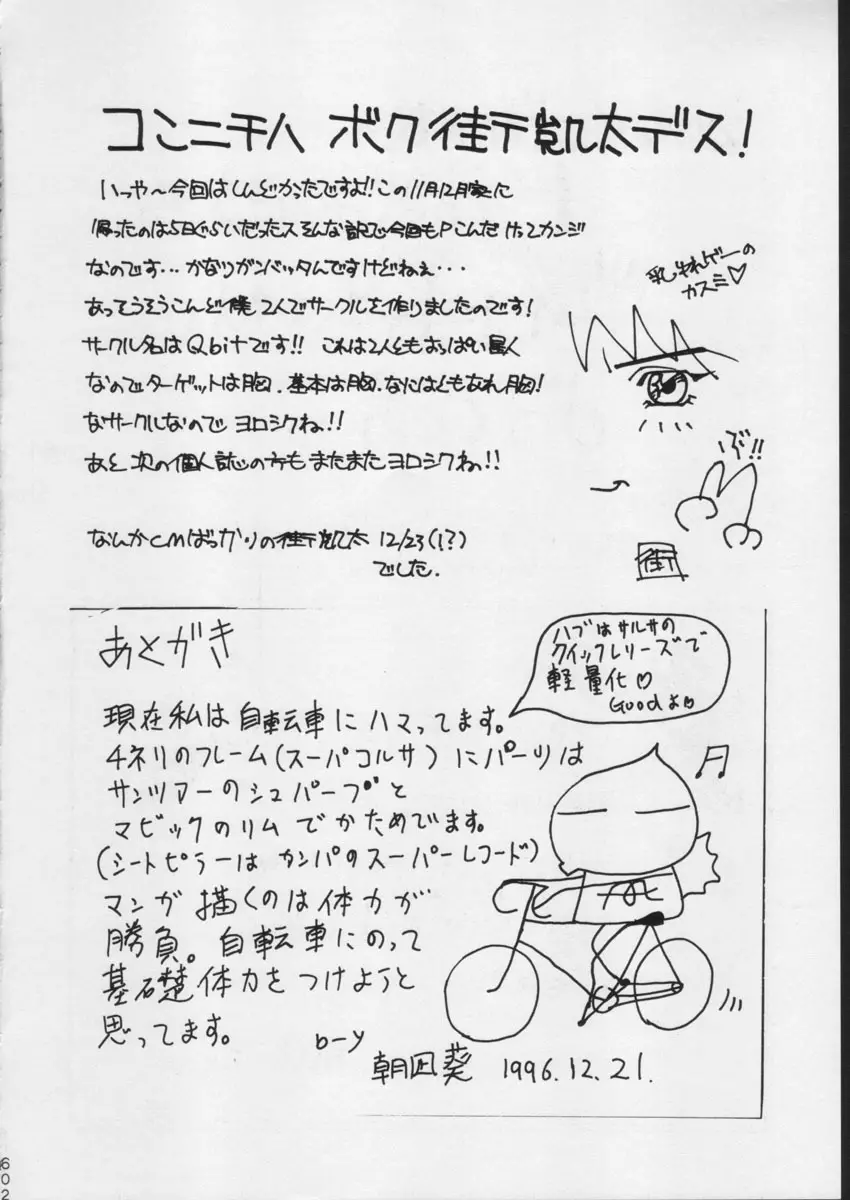 コンニチハ ボク街亍凱太デス!
いっや〜今回はしんどかったですよ!!この11月12月家に
帰ったのは5日ぐらいだったスそんな訳で今回もPこんだけってカンジ
なのです…かなりガンバッタんですけどねぇ・・・
あってうそうそこんど僕2人でサークルを作りましたのです!
サークル名はQbitです!! これは2人ともおっぱい星人
なのでターゲットは胸.基本は胸.なにはともあれ胸!
なサークルなので ヨロシクね!!
あと 次の個人誌の方もまたまたヨロシクねっ!!
なんかCMばっかりの街亍凱太 12/23(!?)
でした.
乳ゆれゲーの
カスミ♡
ぷ!!
街
あとがき
ハブはサルサの
クイックレリーズで
軽量化♡
Goodよ♡
現在私は自転車にハマってます。
チネリのフレーム(スーパコルサ)にパーツは
サンツアーのシュパーブと
マビックのリムでかためてます。
(シートピラーはカンパのスーパーレコード)
マンガ描くのは体力が
勝負。自転車にのって
基礎体力をつけようと
思ってます。
by
朝凪葵 1996.12.21.
602